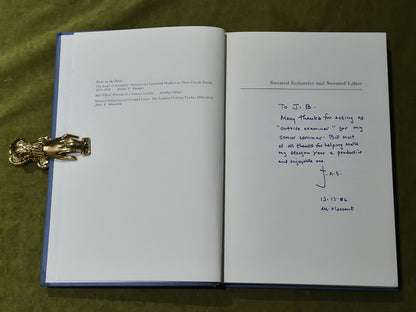 Books in the Series
The Logic of Solidarity: Artisans and Industrial Workers in Three French Towns,
1871-1914 Michael P. Hanagan
Ben Tillett: Portrait of a Labour Leader Jonathan Schneer
Sweated Industries and Sweated Labor: The London Clothing Trades, 1860-1914
James A. Schmiechen
Sweated Industries and Sweated Labor
To J.B.
Many thanks for acting as
"outside examiner" for my
senior seminar. But most
of all thanks for helping make
my Glasgow year a productive
and enjoyable one.
J.A.S.
12-12-86
Mt. Pleasant